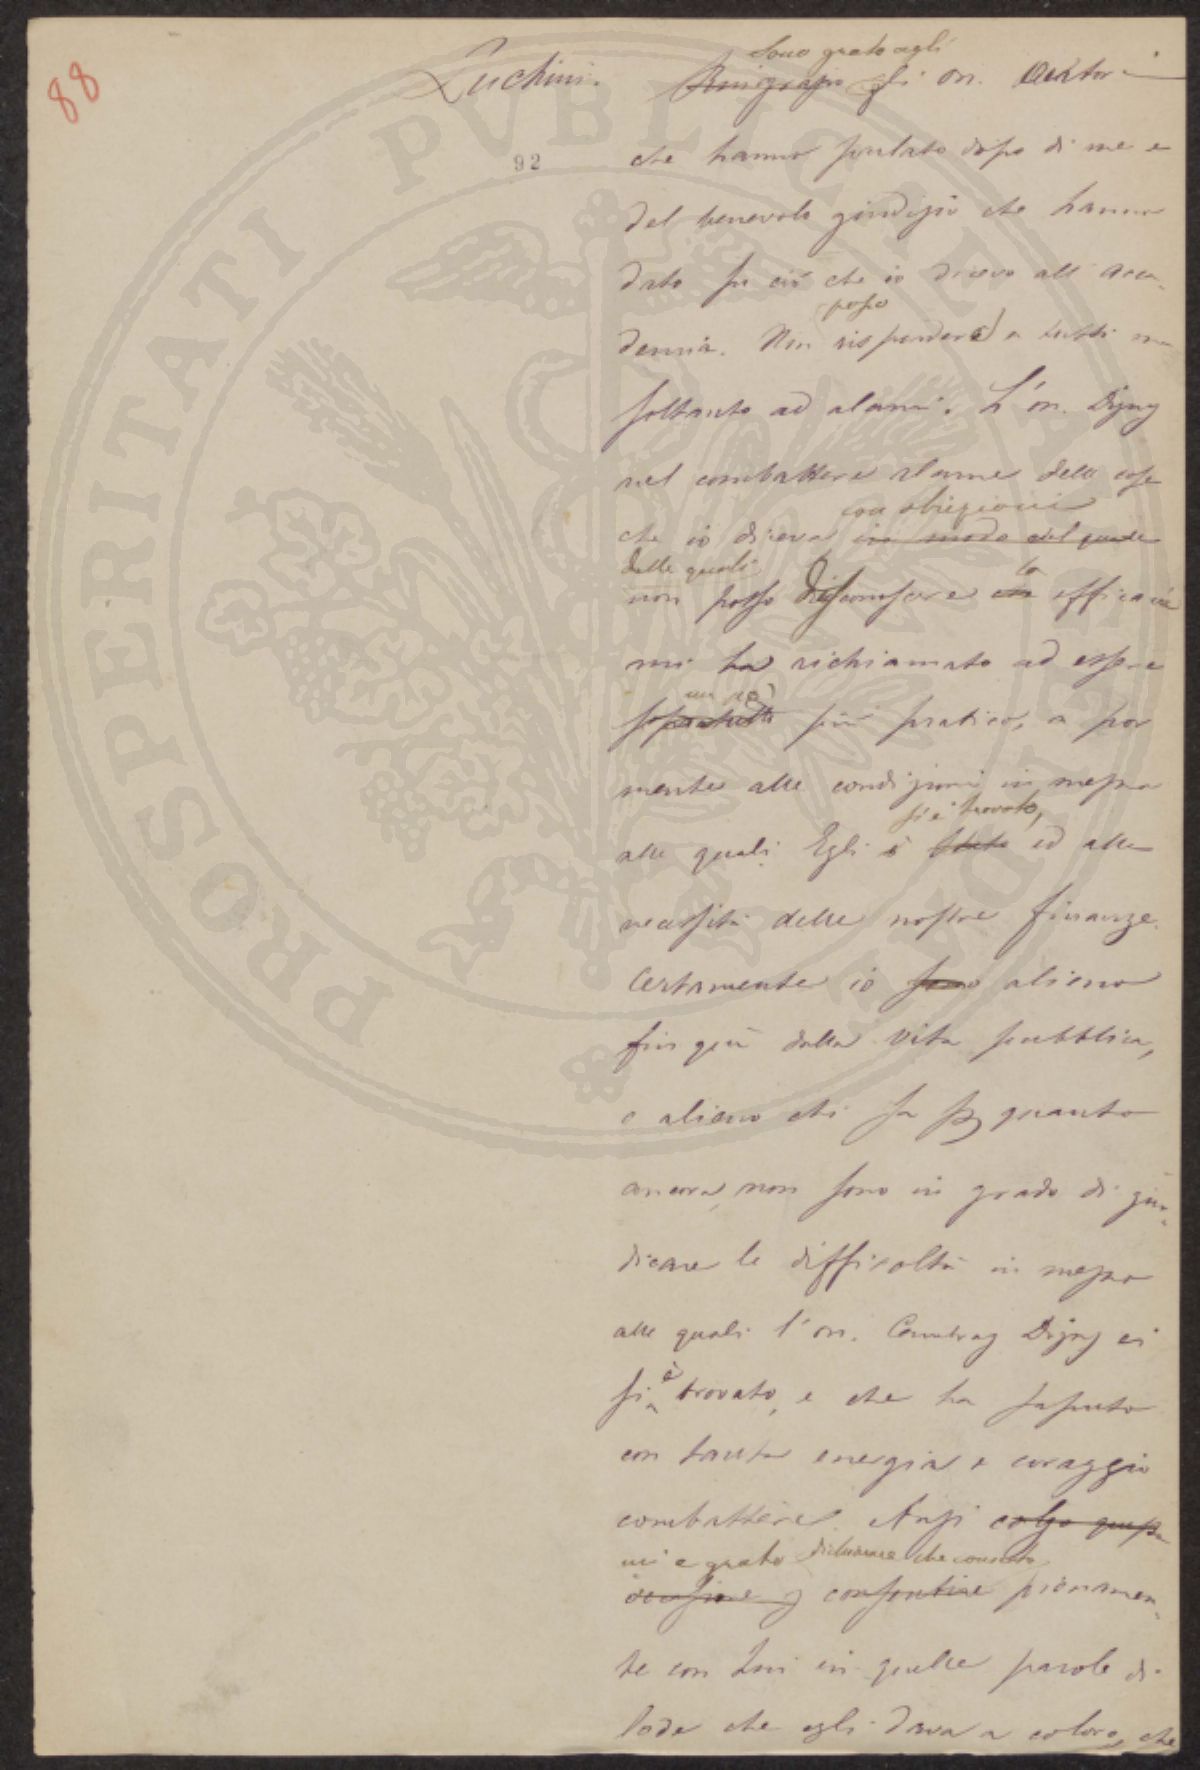 88
92
Luchini.
Sono grato agli
Ringrazio gli on. Oratori
che hanno parlato dopo di me e
del benevolo giudizio che hanno
dato su ciò che io dicevo all'Acca-
posso
demia. Non risponderò a tutti ma
soltanto ad alcuni. L'on. Digny
nel combattere alcune delle cose
con obiezioni
che io diceva in modo del quale
delle quali
la
non posso disconoscere efficacia
mi ha richiamato ad essere
un po'
soprattutto più pratico, a por
mente alle condizioni in mezzo
si è trovato,
alle quali Egli è stato ed alle
necessità delle nostre finanze.
Certamente io sono alieno
fin qui dalla vita pubblica,
e alieno chi sa per quanto
ancora, non sono in grado di giu-
dicare le difficoltà in mezzo
alle quali l'on. Cambray Digny ei
è
si trovato, e che ha saputo
con tanta energia e coraggio
combattere. Anzi colgo questa
mi è grato dichiarare che consento
occasione per consentire pienamen-
te con Lui in quelle parole di
lode che egli dava a coloro, che
PROSPERITATI PVBLICAE